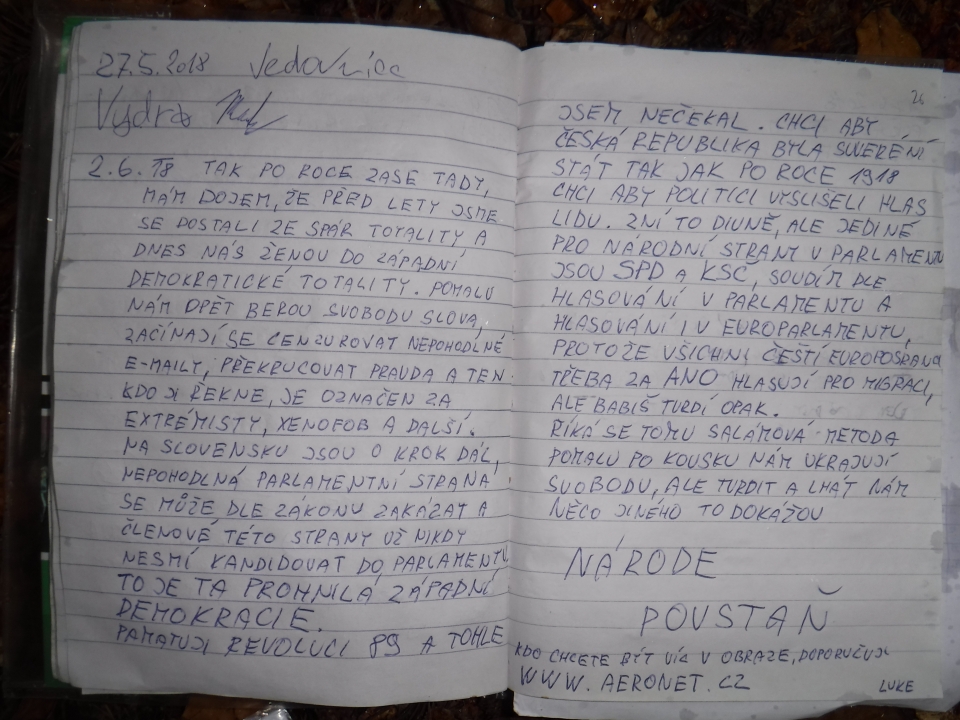 27.5.2018 Jedovnice
Vydra
2.6.18 TAK PO ROCE ZASE TADY,
MÁM DOJEM, ŽE PŘED LETY JSME
SE DOSTALI ZE SPÁR TOTALITY A
DNES NÁS ŽENOU DO ZÁPADNÍ
DEMOKRATICKÉ TOTALITY. POMALU
NÁM OPĚT BEROU SVOBODU SLOVA,
ZAČÍNAJÍ SE CENZUROVAT NEPOHODLNÉ
E-MAILY, PŘEKRUCOVAT PRAVDA A TEN
KDO JI ŘEKNE, JE OZNAČEN ZA
EXTRÉMISTY, XENOFOB A DALŠÍ.
NA SLOVENSKU JSOU O KROK DÁL,
NEPOHODLNÁ PARLAMENTNÍ STRANA
SE MŮŽE DLE ZÁKONU ZAKÁZAT A
ČLENOVÉ TÉTO STRANY UŽ NIKDY
NESMÍ KANDIDOVAT DO PARLAMENTU
TO JE TA PROHNILÁ ZÁPADNÍ
DEMOKRACIE.
PAMATUJI REVOLUCI 89 A TOHLE
26
JSEM NEČEKAL. CHCI ABY
ČESKÁ REPUBLIKA BYLA SUVERÉNÍ
STÁT TAK JAK PO ROCE 1918
CHCI ABY POLITICI VYSLIŠELI HLAS
LIDU. ZNÍ TO DIVNĚ, ALE JEDINĚ
PRO NÁRODNÍ STRANY V PARLAMENTU
JSOU SPD A KSČ, SOUDÍM DLE
HLASOVÁNÍ V PARLAMENTU A
HLASOVÁNÍ I V EUROPARLAMENTU,
PROTOŽE VŠICHNI ČEŠTÍ
TŘEBA ZA ANO HLASUJÍ PRO MIGRACI,
ALE BABIŠ TVRDÍ OPAK.
ŘÍKÁ SE TOMU SALÁMOVÁ METODA
POMALU PO KOUSKU NÁM UKRAJUJÍ
SVOBODU, ALE TVRDIT A LHÁT NÁM
NĚCO JINÉHO TO DOKÁŽOU
NÁRODE
POVSTAŇ
KDO CHCETE BÝT VÍC V OBRAZE, DOPORUČUJI
WWW.AERONET.CZ LUKE